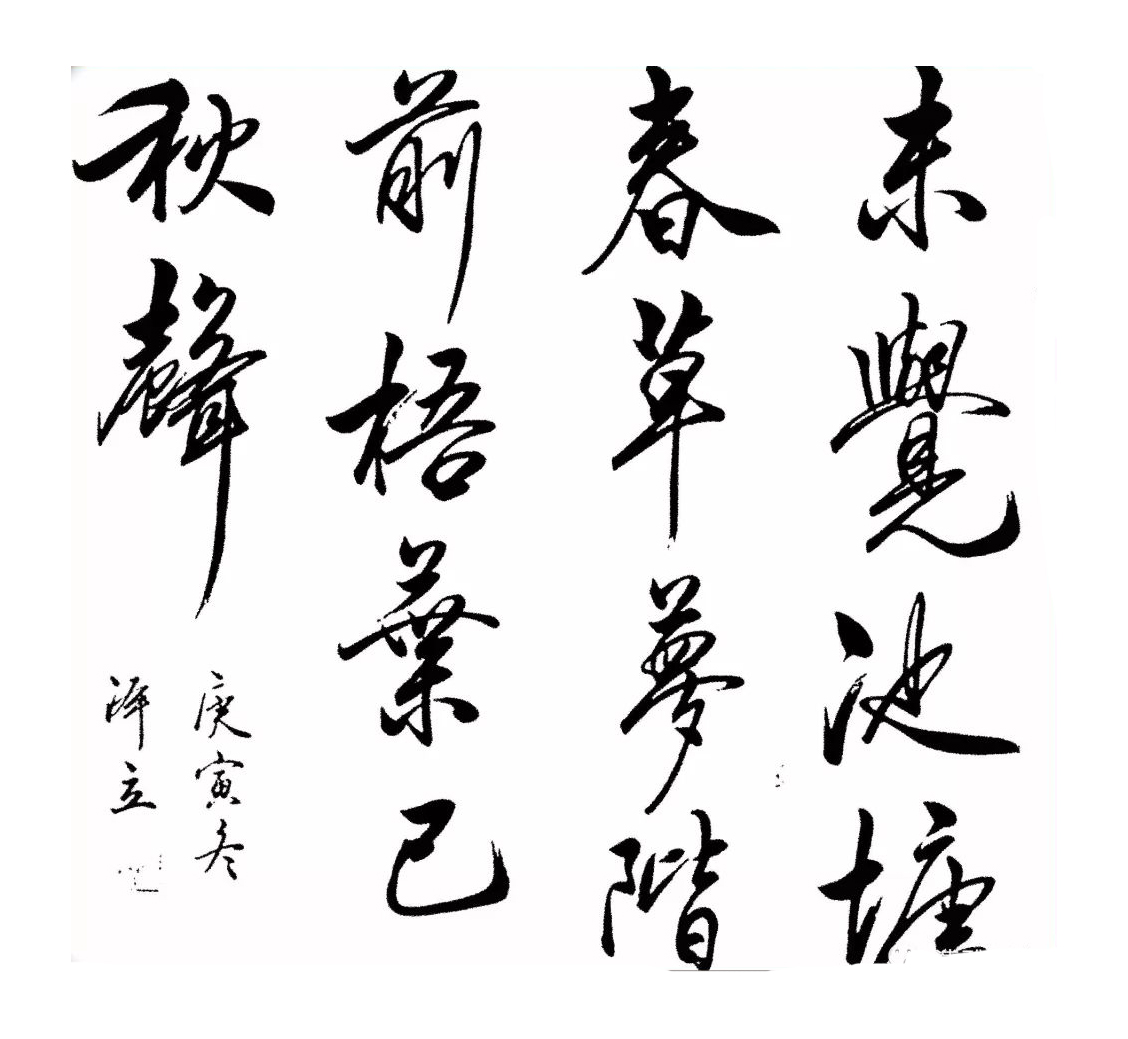 未覺池塘
春草夢階
前梧葉已
秋聲
庚寅冬
澤立